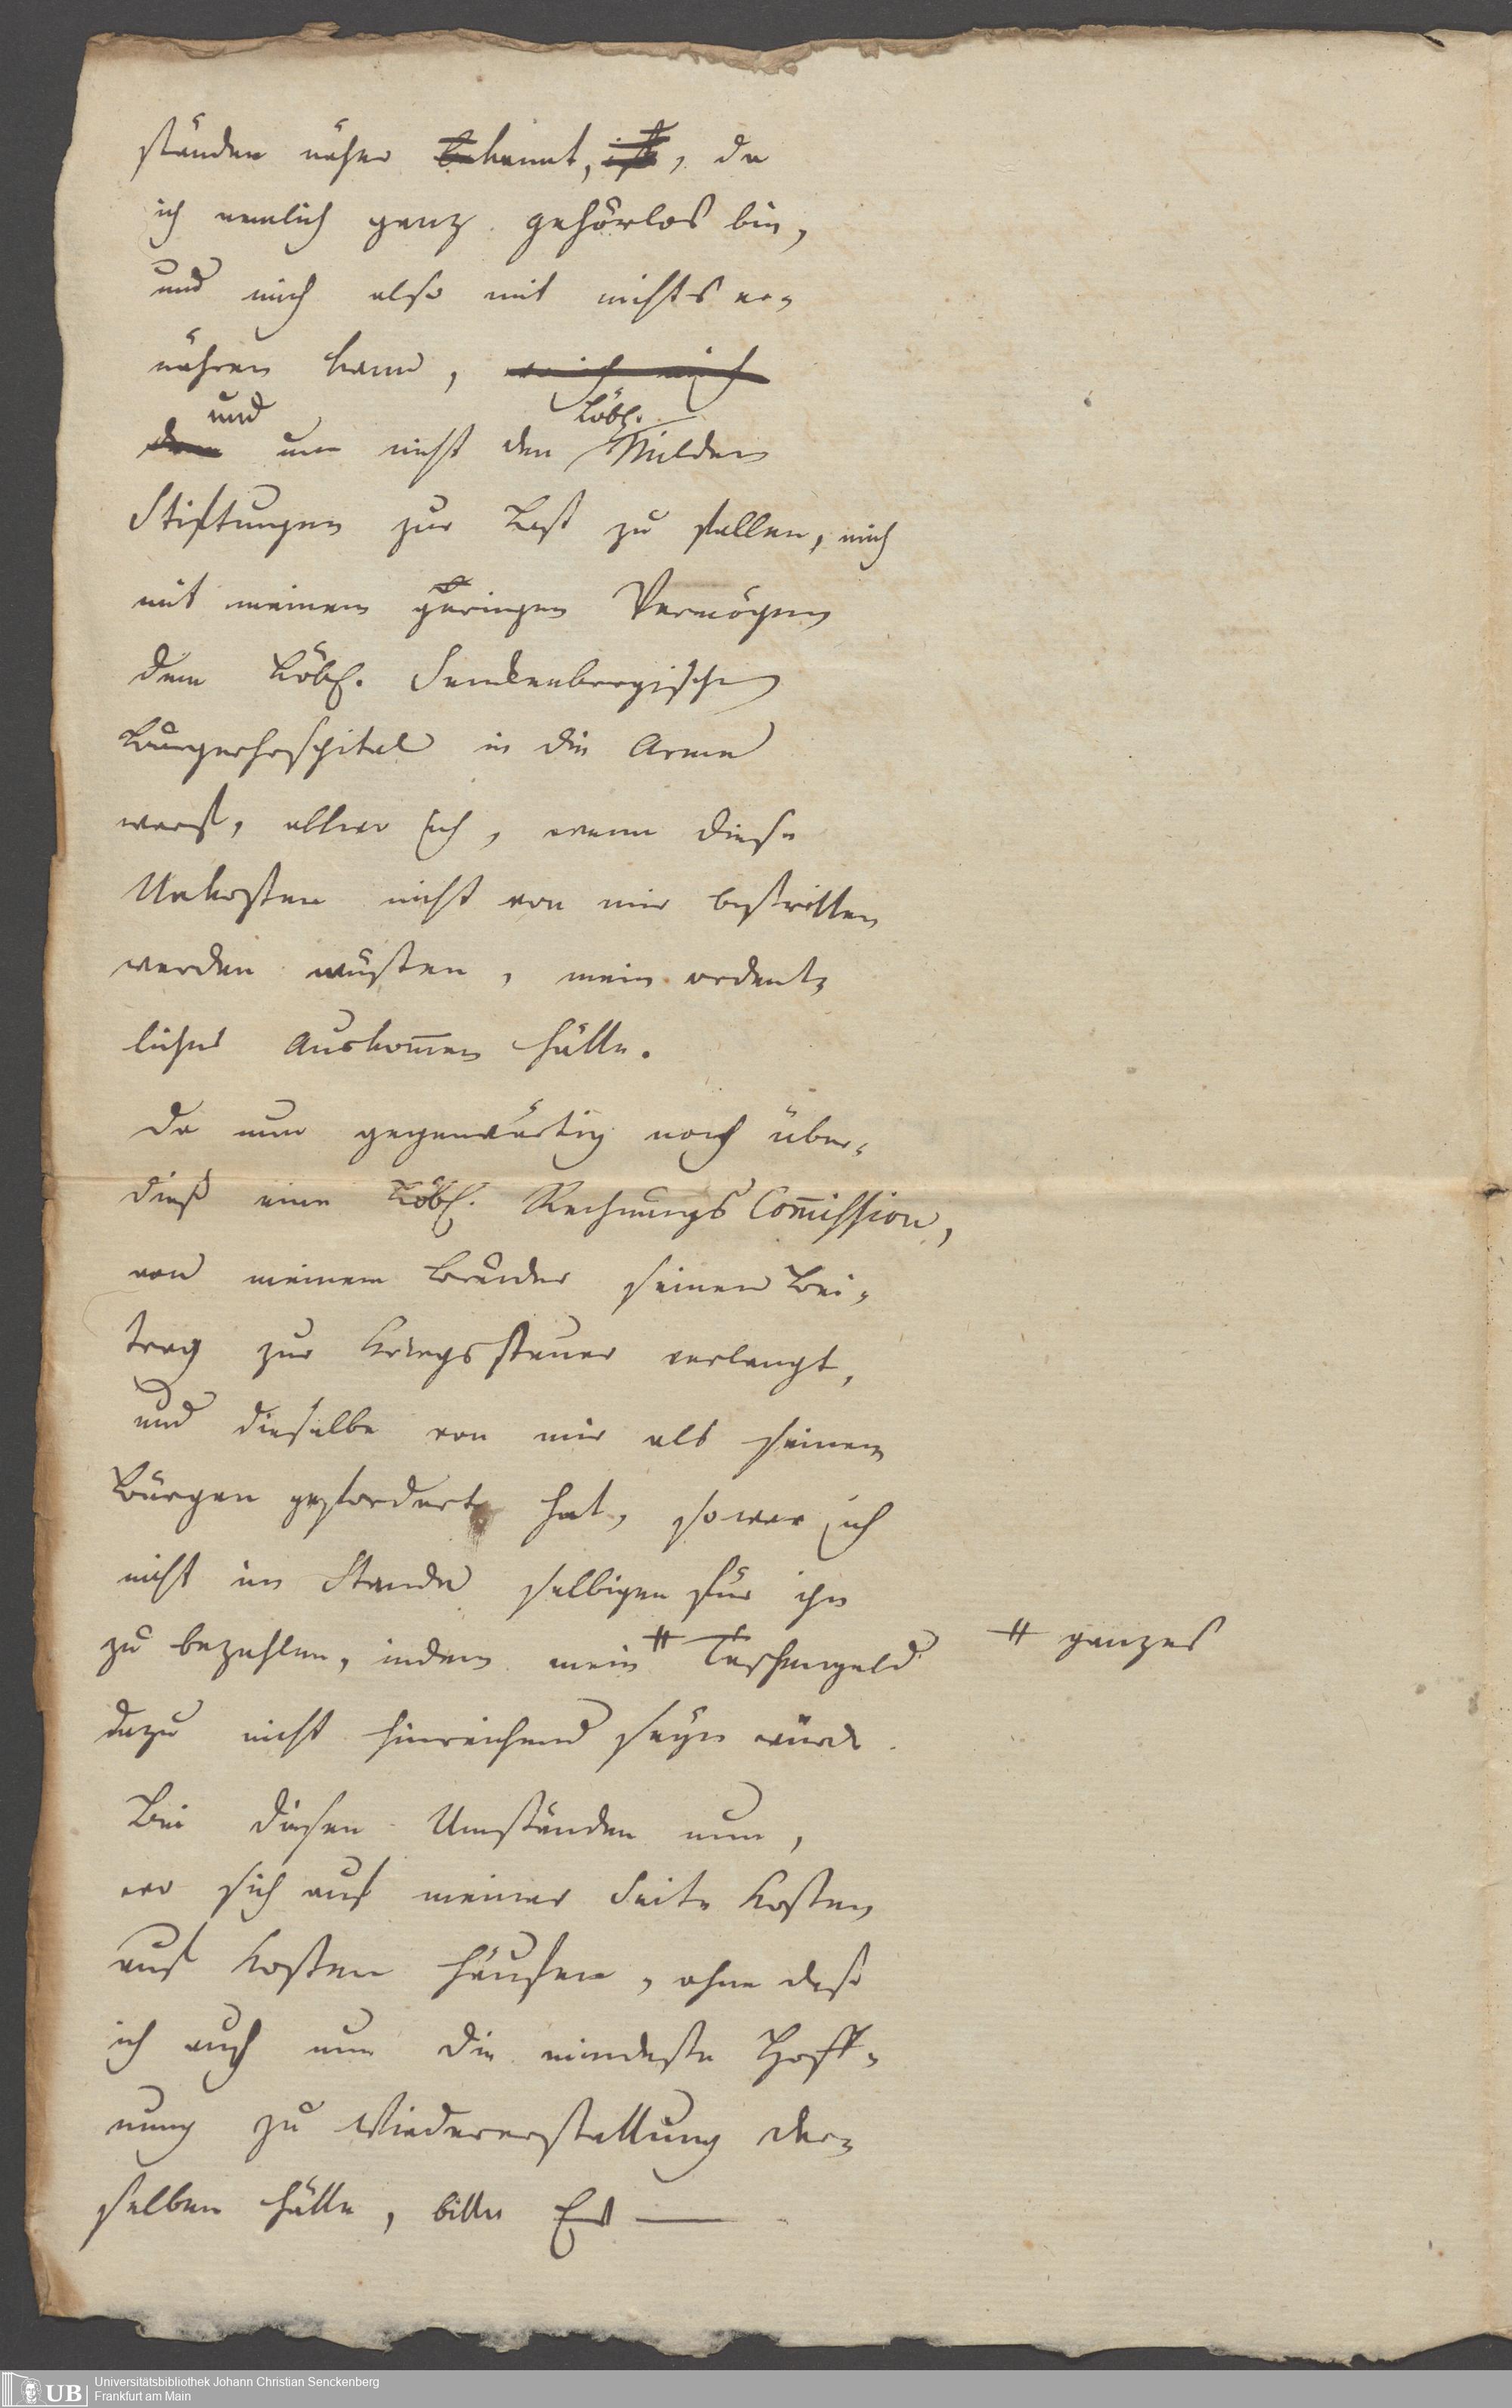 ständen näher bekannt, ist, da
ich nemlich ganz gehörlos bin,
und mich also mit nichts er-
nähren kann,
und
um nicht den Löbl. Milden
Stiftungen zur Last zu fallen, mich
mit meinem geringen Vermögen
dem Löbl. Senckenbergischen
Burgerhospital in die Arme
warf, allwo ich, wenn diese
Unkosten nicht von mir bestritten
werden müsten, mein ordent-
liches Auskom̄en hätte.
Da nun gegenwärtig noch über-
dieß eine Löbl. Rechnungs Com̄ission,
von meinem Bruder seinen Bei-
trag zur Kriegssteuer verlangt,
und dieselbe von mir als seinem
Bürgen gefordert hat, so war ich
nicht im Stande selbigen für ihn
zu bezahlen, indem mein # Taschengeld
# ganzes
dazu nicht hinreichend seyn würde.
Bei diesen Umständen nun,
wo sich auf meiner Seite Kosten
auf Kosten häufen, ohne daß
ich auch nur die mindeste Hoff-
nung zu Wiedererstattung der-
selben hätte, bitte Ew —
Universitätsbibliothek Johann Christian Senckenberg
Frankfurt am Main
UB